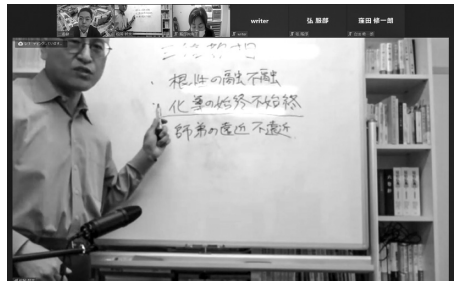 writer
弘 服部
窪田 修一郎
三種教相
・根性の融不融
・化導の始終不始終
師弟の遠近不遠近